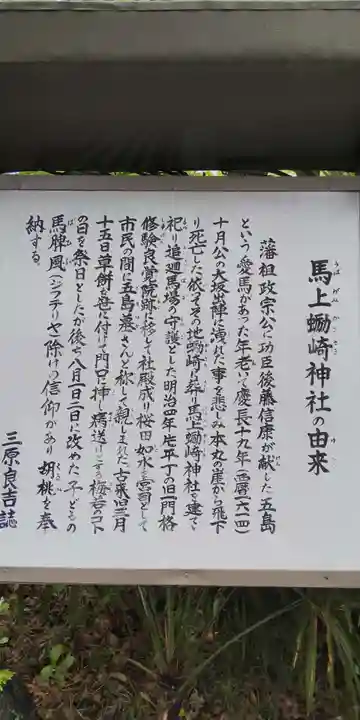 馬上蛎崎神社の由来
藩祖政宗公に功臣後藤信康が献じた五島
という愛馬があった年老いて慶長十九年(西暦一六一四)
十月公の大坂出陣に洩れた事を悲しみ本丸の崖から飛下
り死亡した依ってその地蛎崎に葬り馬上蛎崎神社を建て
祀り追廻馬場の守護とした明治四年片平丁の旧一門格
修験良覚院跡に移して社殿成り桜田如水を宮司として
市民の間に五島墓さんと称して親しまれた古来旧三月
十五日草餅を巷に付けて門口に挿し病送りする梅若のコト
の日を祭日としたが後ち八月一日二日に改めた子どもの
馬脾風(ジフテリヤ)除けの信仰があり胡桃を奉
納する。
三原良吉誌